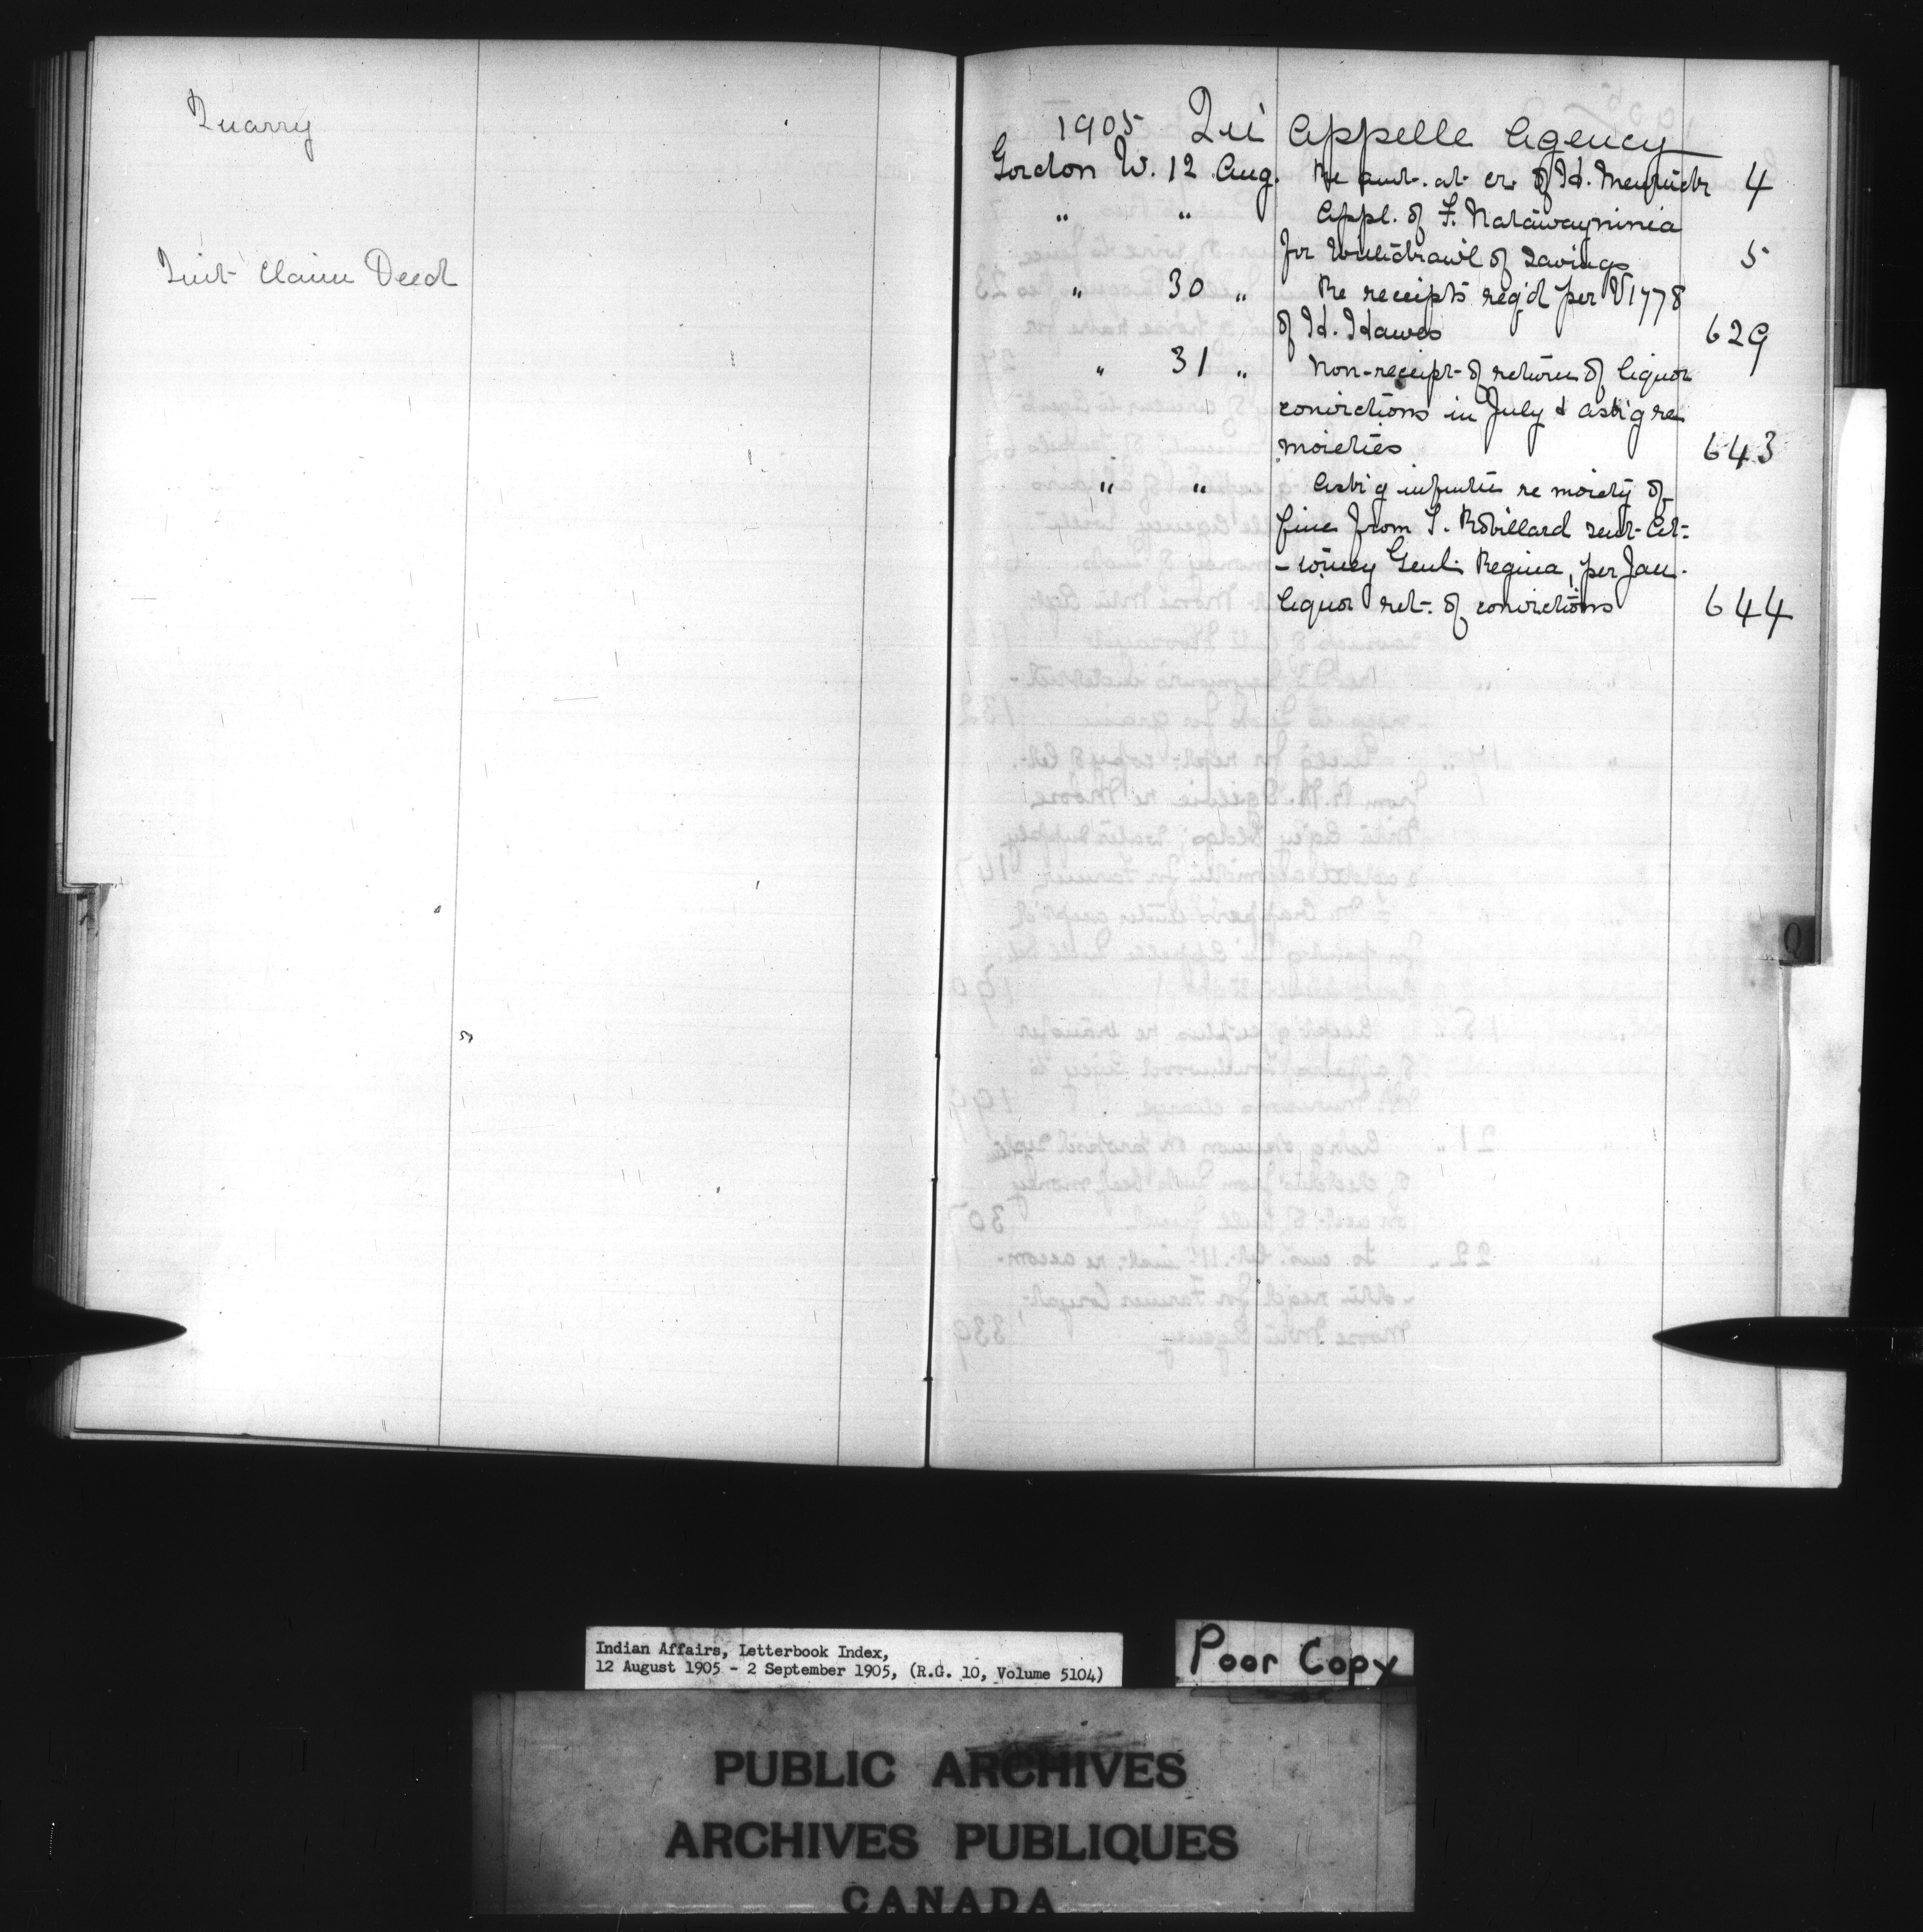 Quarry
Quit Claim Deed
1905 Qu'Appelle Agency
Gordon W. 12 Aug. Re amt. at cr. of H. 4
" " Appl. of F.
for withdrawl of savings 5
" 30 " Re receipts req'd per V1778
of H. Hawes 629
" 31 " Non-receipt of return of liquor
convictions in July & ask'g re
moieties 643
" " Ask'g re moiety of
fine from T. Robillard sent At-
-torney Genl. Regina, per Jan.
liquor ret. of convictions 644
Q
Indian Affairs, Letterbook Index,
12 August 1905 - 2 September 1905, (R.G. 10, Volume 5104)
Poor Copy
PUBLIC ARCHIVES
ARCHIVES PUBLIQUES
CANADA